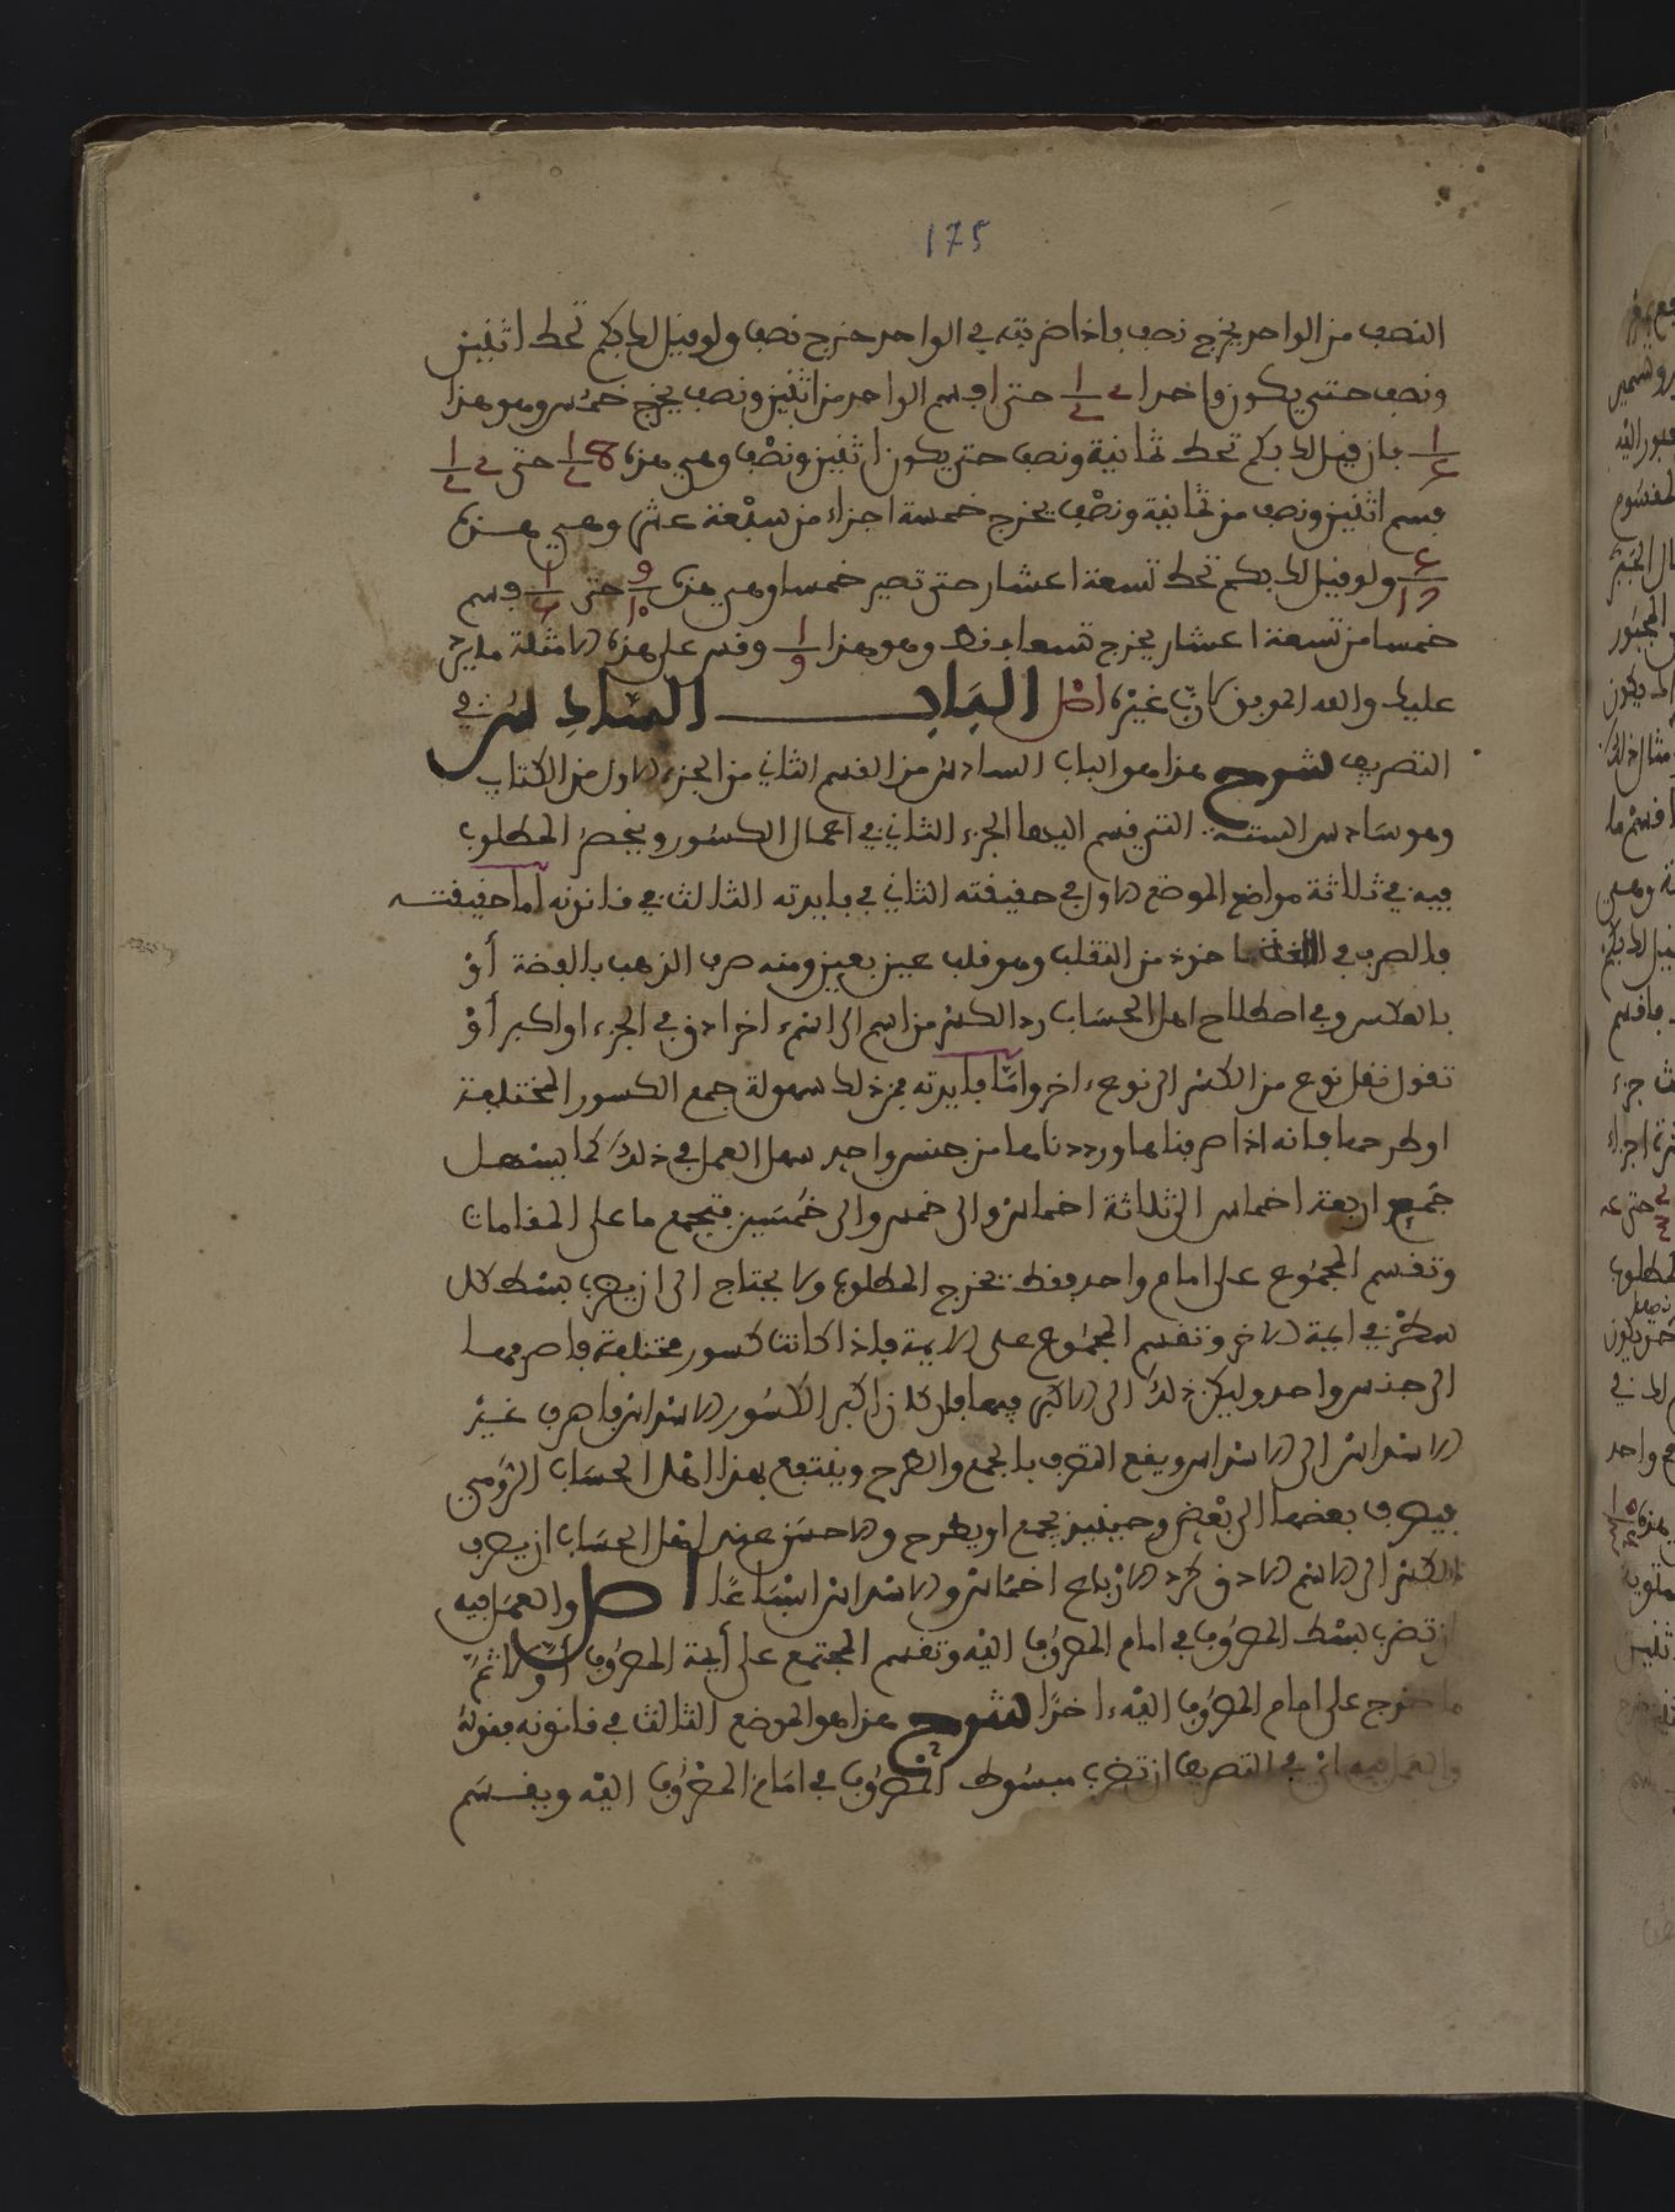 175
النصف من الواحد يخرج نصف فإذا ضربته في الواحد خرج نصف ولو قيل لك بكم تحط اثنين
ونصف حتى يكون واحدا 2 1/2 حتى 1 قسم الواحد من اثنين ونصف يخرج خمسين وهو هذا
فإن قيل لك بكم تحط ثمانية ونصف حتى يكون اثنين ونصف وهي هذه 8 1/2 حتى 2 1/2
قسم اثنين ونصف من ثمانية ونصف يخرج خمسة أجزاء من سبعة عشر وهي هذه
5/17 ولو قيل لك بكم تحط تسعة أعشار حتى تصير خمسا وهي هذه 9/10 حتى 1/5 قسم
خمسا من تسعة أعشار يخرج تسعان فقط وهو هذا 1/9 وقس على هذه الأمثلة ما يرد
عليك والله الموفق لا رب غيره اصل الباب السادس في
التصريف شرح هذا هو الباب السادس من القسم الثاني من الجزء الاول من الكتاب
وهو سادس الستة التي قسم اليها الجزء الثاني في أعمال الكسور وينحصر المطلوب
فيه في ثلاثة مواضع الموضع الاول في حقيقته الثاني في فايدته الثالث في قانونه أما حقيقته
فالصرف في اللغة ماخوذ من التقلب وهو قلب عين بعين ومنه صرف الذهب بالفضة أو
بالعكس وفي اصطلاح اهل الحساب رد الكسر من اسم الى اسم اخر ادق في الجزء او اكبر أو
تقول نقل نوع من الكسر الى نوع اخر وأما فايدته فمن ذلك سهولة جمع الكسور المختلفة
او طرحها فانه اذا صرفناها ورددناها من جنس واحد سهل العمل في ذلك كما يسهل
جمع اربعة اخماس الى ثلاثة اخماس والى خمس والى خمسين فتجمع ما على المقامات
وتقسم المجموع على امام واحد فقط يخرج المطلوب ولا يحتاج الى ان يضرب بسط كل
سطر في ايمة الاخر وتقسم المجموع على الايمة فاذا كانت كسور مختلفة فاصرفها
الى جنس واحد وليكن ذلك الى الاكبر فيها فان كان اكبر الكسور الاسداس فاصرف غير
الاسداس الى الاسداس ويقع التصرف بالجمع والطرح وينتفع بهذا اهل الحساب الرومي
فيصرف بعضها الى بعض وحينئذ يجمع او يطرح والاحسن عند اهل الحساب ان يصرف
الكسر الى الاسم الادق كرد الارباع اخماس والاسداس اسباعا اصل والعمل فيه
ان تضرب بسط المصروف في امام المصروف اليه وتقسم المجتمع على أيمة المصروف أولا ثم
ما خرج على امام المصروف اليه ءاخرا شرح هذا هو الموضع الثالث في قانونه فقوله
والعمل فيه اي في التصريف ان تضرب بسوط المصروف في امام المصروف اليه ويقسم